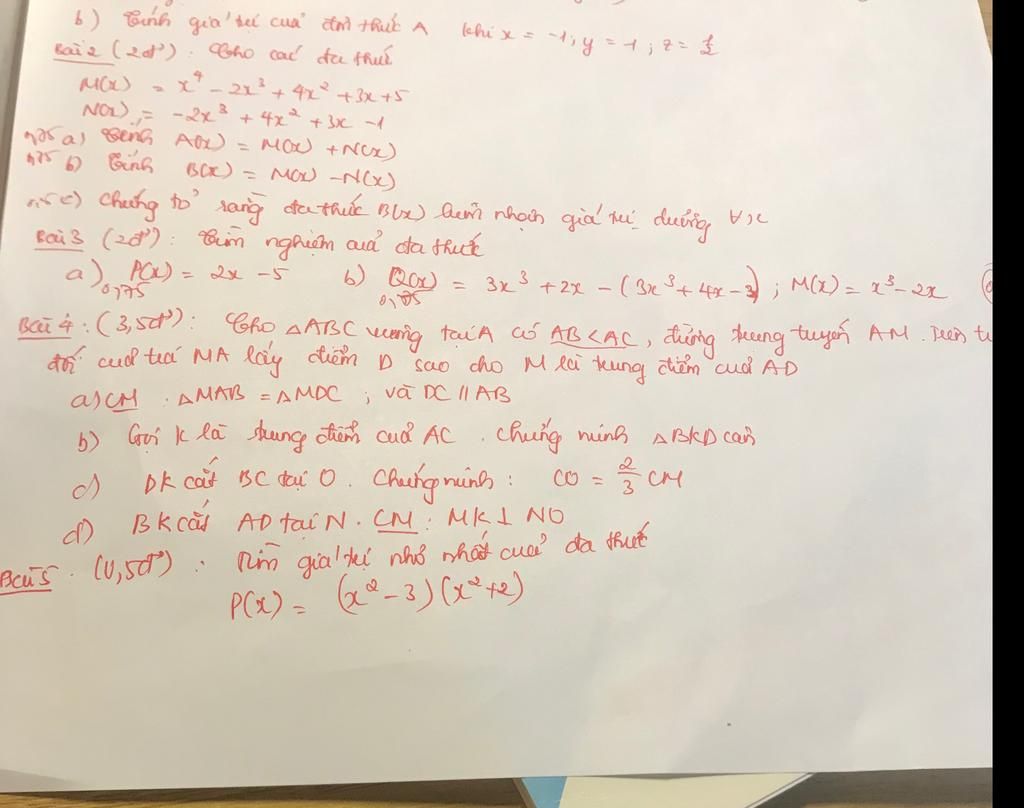 b) Tính giá trị của đơn thức A khi x = -1; y = -1; z = 1/2
Bài 2 (2đ): Cho các đa thức
M(x) = x⁴ - 2x³ + 4x² + 3x + 5
N(x) = -2x³ + 4x² + 3x - 1
0,75 a) Tính A(x) = M(x) + N(x)
0,75 b) Tính B(x) = M(x) - N(x)
0,5 c) Chứng tỏ rằng đa thức B(x) luôn nhận giá trị dương ∀x
Bài 3 (2đ): Tìm nghiệm của đa thức
a) P(x) = 2x - 5 b) Q(x) = 3x³ + 2x - (3x³ + 4x - 3); M(x) = x³ - 2x
0,75 0,75
Bài 4: (3,5đ): Cho △ABC vuông tại A có AB < AC, đường trung tuyến AM. Trên t
đối của tia MA lấy điểm D sao cho M là trung điểm của AD
a) CM: △MAB = △MDC; và DC // AB
b) Gọi K là trung điểm của AC. Chứng minh △BKD cân
c) DK cắt BC tại O. Chứng minh: CO = 2/3 CM
d) BK cắt AD tại N. CM: MK ⊥ NO
Bài 5. (0,5đ): Tìm giá trị nhỏ nhất của đa thức
P(x) = (x² - 3)(x² + 2)